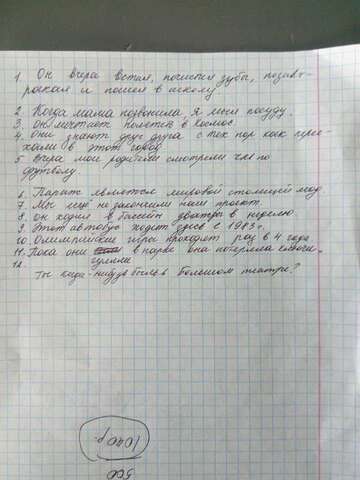 1 Он вчера встал, почистил зубы, позавт-
ракал и пошел в школу
2 Когда мама позвонила, я мыл посуду.
3. Он мечтает полететь в космос
4 Они знают друг друга с тех пор как прие-
хали в этот город
5 Вчера мои родители смотрели чм по
футболу.
6. Париж является мировой столицей мод.
7 Мы ещё не закончили наш проект.
8. он ходил в бассейн дважды в неделю
9. Этот автобус ходит здесь с 1983 г.
10. Олимпийские игры проходят раз в 4 года
11. Пока они в парке она потеряла
гуляли
12.
Ты когда-нибудь был в большом театре?
1040 р.
500